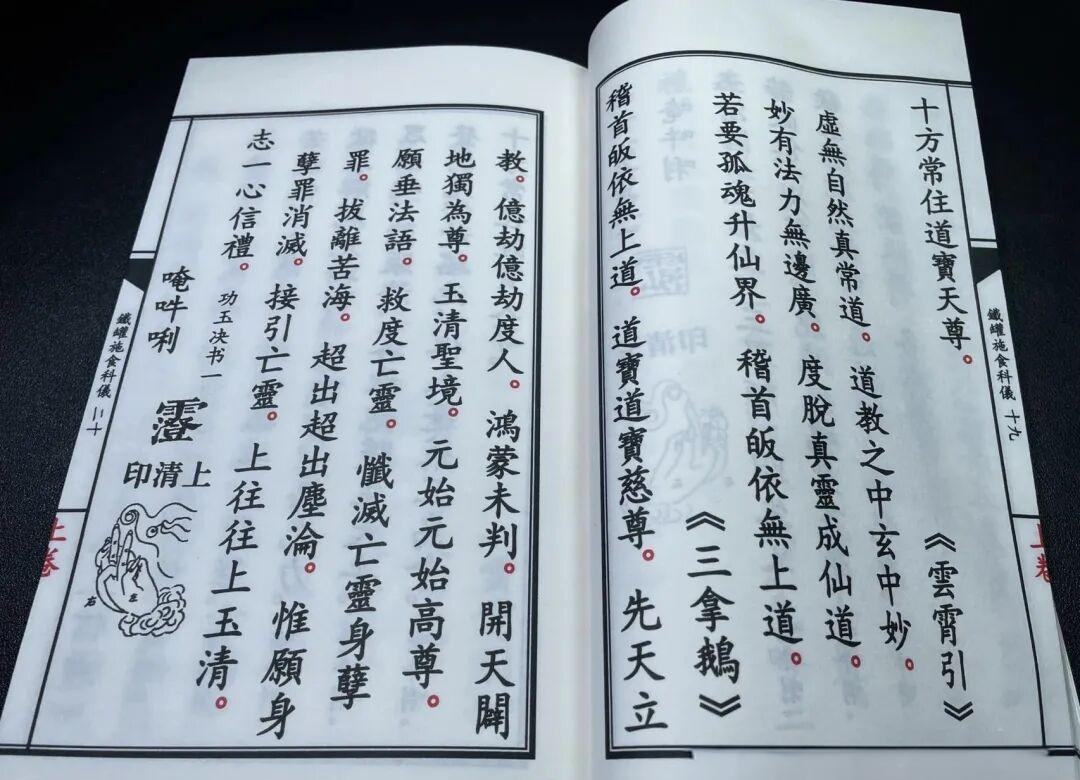 十方常住道寶天尊。
《雲霄引》
虛無自然真常道。道教之中玄中妙。
妙有法力無邊廣。度脫真靈成仙道。
若要孤魂升仙界。稽首皈依無上道。
《三拿鵝》
稽首皈依無上道。道寶道寶慈尊。先天立
鐵罐施食科儀 十九
上卷
教。億劫億劫度人。鴻蒙未判。開天闢
地獨為尊。玉清聖境。元始元始高尊。
願垂法語。救度亡靈。懺滅亡靈身孽
罪。拔離苦海。超出超出塵淪。惟願身
孽罪消滅。接引亡靈。上往往上玉清。
志一心信禮。
功玉决书一
唵吽唎
上清印
左
右
鐵罐施食科儀 二十
上卷